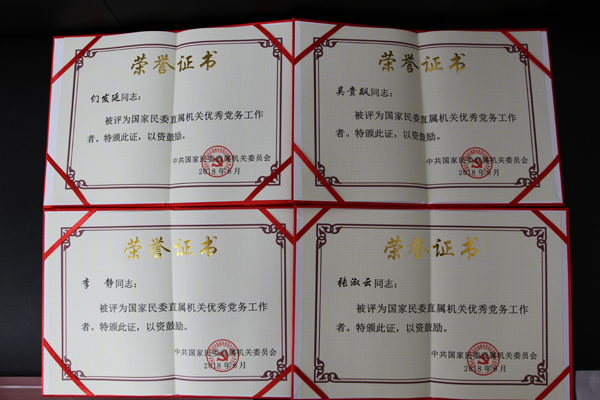 荣誉证书
们发延同志：
被评为国家民委直属机关优秀党务工作
者。特颁此证，以资鼓励。
中共国家民委直属机关委员会
2018年6月
荣誉证书
吴贵飙同志：
被评为国家民委直属机关优秀党务工作
者。特颁此证，以资鼓励。
中共国家民委直属机关委员会
2018年6月
荣誉证书
李 静同志：
被评为国家民委直属机关优秀党务工作
者。特颁此证，以资鼓励。
中共国家民委直属机关委员会
2018年6月
荣誉证书
张淑云同志：
被评为国家民委直属机关优秀党务工作
者。特颁此证，以资鼓励。
中共国家民委直属机关委员会
2018年6月